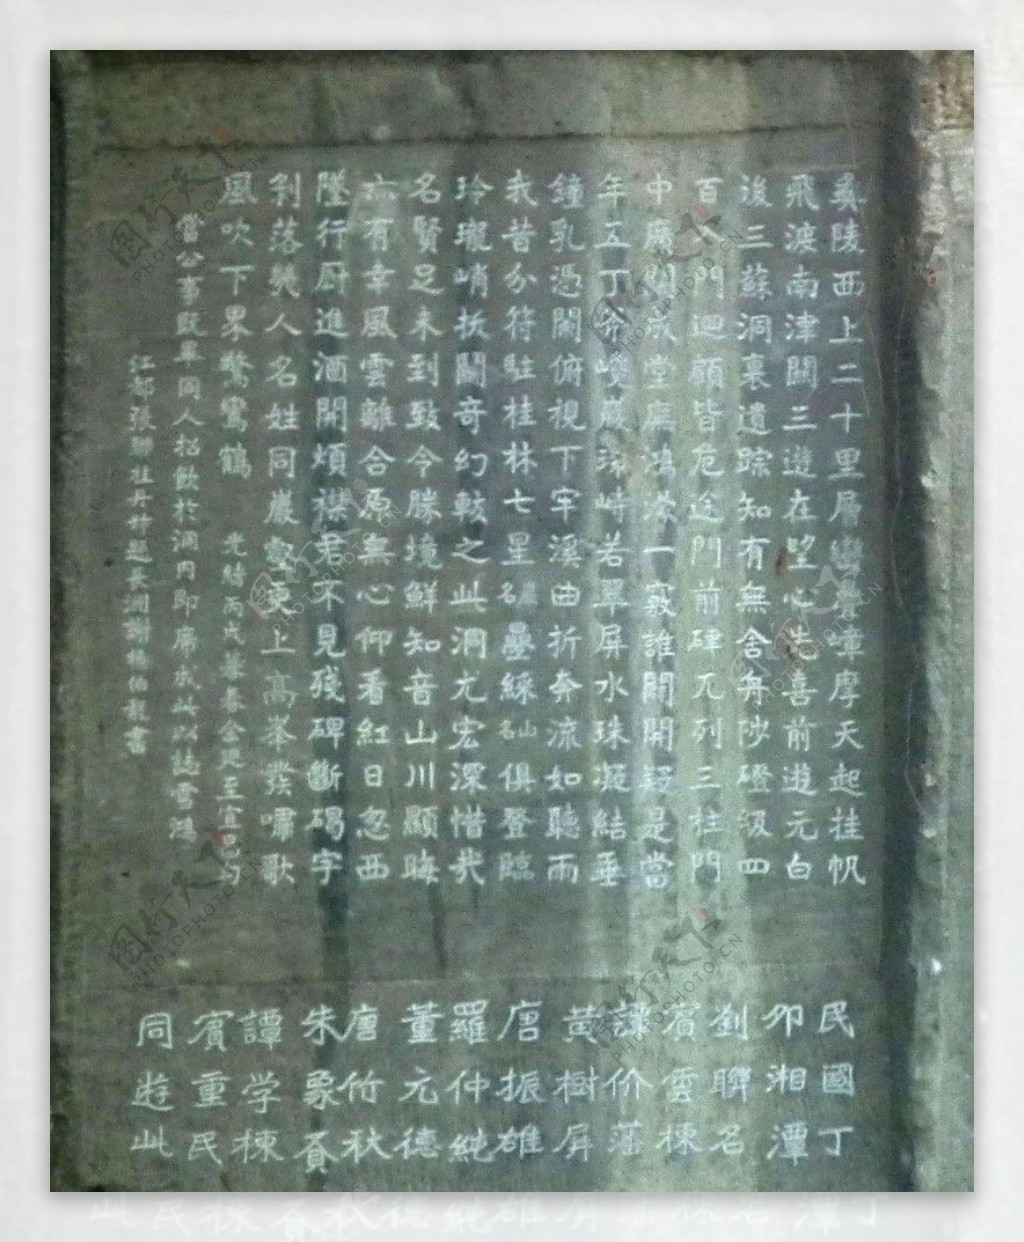 彝陵西上二十里層巒疊嶂摩天起挂帆
飛渡南津關三遊在望心先喜前遊元白
後三蘇洞裏遺踪知有無舍舟陟磴級四
百入門迴顧皆危途門前碑兀列三柱門
中廣闊成堂廡鴻濛一竅誰開闢是當
年五丁巖深峙若翠屏水珠凝結垂
鐘乳憑闌俯視下牢溪曲折奔流如聽雨
我昔分符駐桂林七星巖名疊綵山名俱登臨
玲瓏峭拔闢奇幻較之此洞尤宏深惜哉
名賢足未到致令勝境鮮知音山川顯晦
六有幸風雲離合原無心仰看紅日忽西
墜行厨進酒開煩襟君不見殘碑斷碣字
剝落幾人名姓同巖壑更上高峯發嘯歌
風吹下界驚鸞鶴 光緒丙戌暮春余遊至宜昌勾
當公事既畢同人招飲於洞内即席成此以誌雪鴻
江都張聯桂丹叔題長洲謝伯書
民國丁
卯湘潭
劉聯名
賓雲棟
譚价藩
黄樹屏
唐振雄
羅仲純
董元德
唐竹秋
朱象賁
譚学棟
賓重民
同遊此
图行天下
PHOTOPHOTO.CN